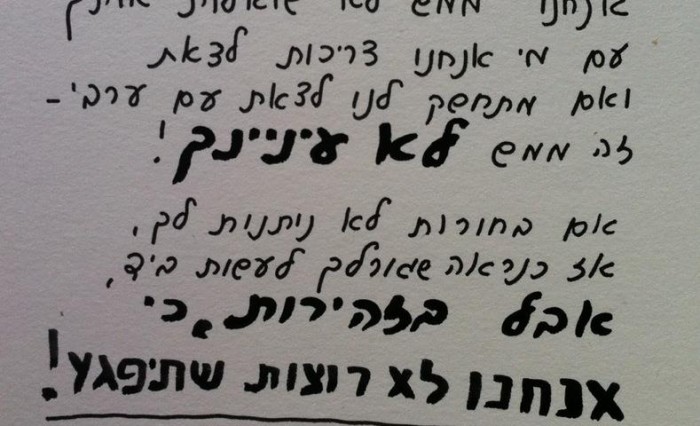 אנחנו ממש לא שואלות אותך
עם מי אנחנו צריכות לצאת
ואם מתחשק לנו לצאת עם ערבי -
זה ממש לא עיניינך!
אם בחורות לא ניתנות לך,
אז כנראה שגורלך לעשות ביד,
אבל בזהירות, כי
אנחנו לא רוצות שתיפגע!